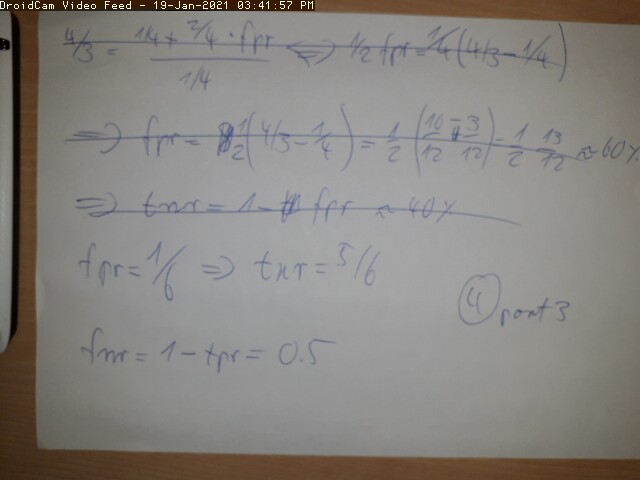 DroidCam Video Feed - 19-Jan-2021 03:41:57 PM
4/3 = (1/4 + 3/4 · fpr) / (1/4) <=> 1/2 fpr = 1/4 (4/3 - 1/4)
=> fpr = 1/2 (4/3 - 1/4) = 1/2 (10/12 - 3/12) = 1/2 13/12 ≈ 60%
=> tnr = 1 - fpr ≈ 40%
fpr = 1/6 => tnr = 5/6
4 part 3
fnr = 1 - tpr = 0.5